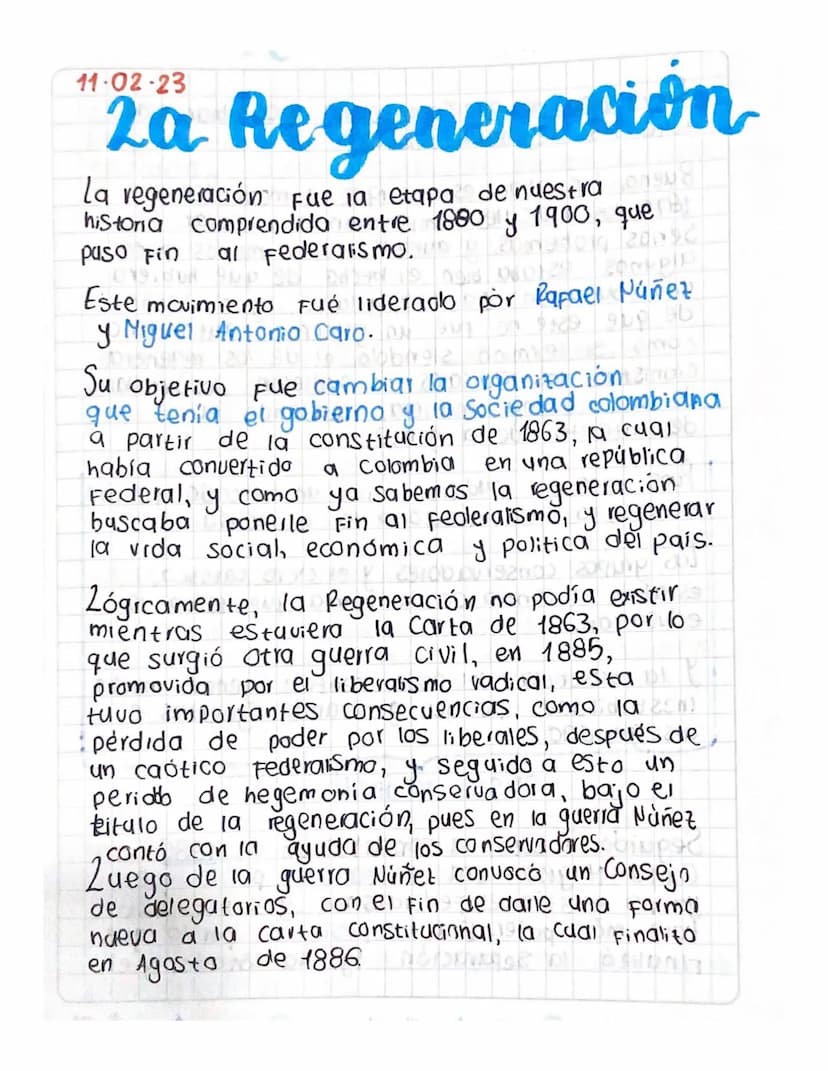 11·02·23
La Regeneración
La regeneración fue la etapa de nuestra
historia comprendida entre 1880 y 1900, que
puso fin al federalismo.
Este movimiento fué liderado por Rafael Núñez
y Miguel Antonio Caro.
Su objetivo fue cambiar la organización
que tenía el gobierno y la sociedad colombiana
a partir de la constitución de 1863, la cual
había convertido a Colombia en una república
federal, y como ya sabemos la regeneración
buscaba ponerle fin al federalismo, y regenerar
la vida social, económica y politica del país.
Lógicamente, la Regeneración no podía existir
mientras estuviera la Carta de 1863, por lo
que surgió otra guerra civil, en 1885,
promovida por el liberalismo radical, esta
tuvo importantes consecuencias, como la
pérdida de poder por los liberales, después de
un caótico federalismo, y seguido a esto un
periodo de hegemonía conservadora, bajo el
titulo de la regeneración, pues en la guerra Núñez
contó con la ayuda de los conservadores.
Luego de la guerra Núñez convocó un Consejo
de delegatorios, con el fin de darle una forma
nueva a la carta constitucional, la cual finalizó
en Agosto de 1886